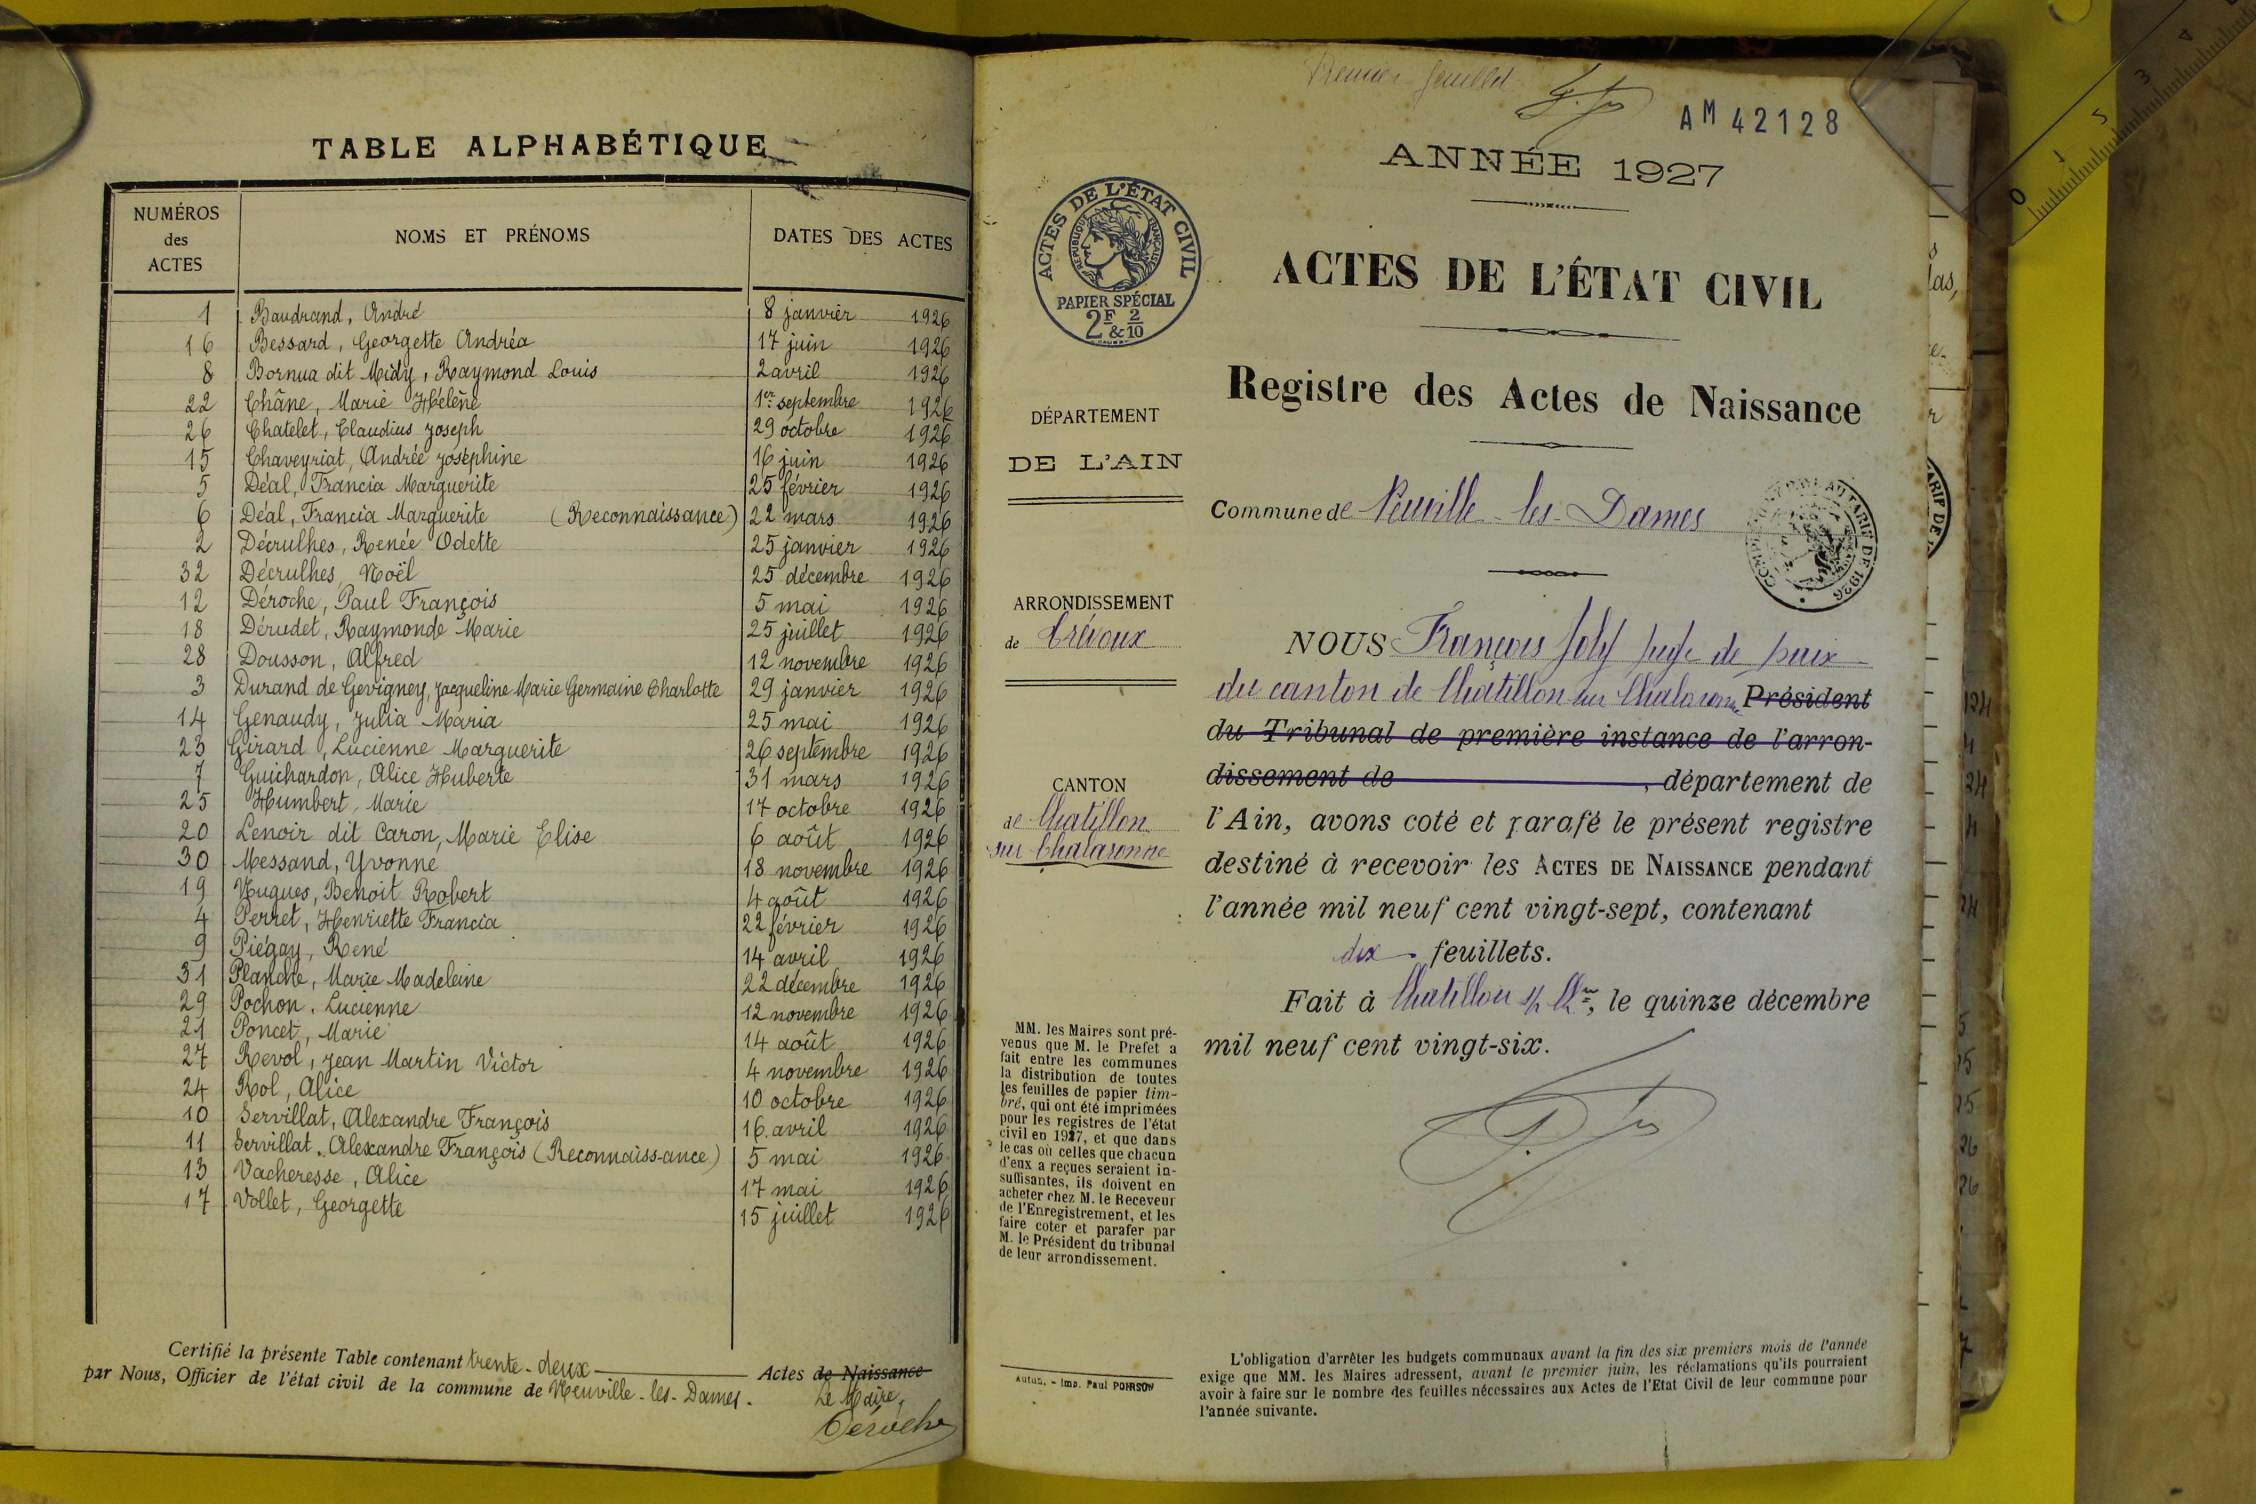 TABLE ALPHABÉTIQUE
NUMÉROS des ACTES | NOMS ET PRÉNOMS | DATES DES ACTES
1 Baudrand, André 8 janvier 1926
16 Bessard, Georgette Andréa 17 juin 1926
8 Bornua dit Midy, Raymond Louis 2 avril 1926
22 Châne, Marie Hélène 1er septembre 1926
26 Chatelet, Claudius Joseph 29 octobre 1926
15 Chaveyriat, Andrée Joséphine 16 juin 1926
5 Déal, Francia Marguerite 25 février 1926
6 Déal, Francia Marguerite (Reconnaissance) 22 mars 1926
2 Décrulhes, Renée Odette 25 janvier 1926
32 Décrulhes, Noël 25 décembre 1926
12 Déroche, Paul François 5 mai 1926
18 Dérudet, Raymonde Marie 25 juillet 1926
28 Dousson, Alfred 12 novembre 1926
3 Durand de Gevigney, Jacqueline Marie Germaine Charlotte 29 janvier 1926
14 Genaudy, Julia Maria 25 mai 1926
23 Girard, Lucienne Marguerite 26 septembre 1926
7 Guichardon, Alice Huberte 31 mars 1926
25 Humbert, Marie 17 octobre 1926
20 Lenoir dit Caron, Marie Elise 6 août 1926
30 Messand, Yvonne 18 novembre 1926
19 Nugues, Benoit Robert 4 août 1926
4 Perret, Henriette Francia 22 février 1926
9 Piégay, René 14 avril 1926
31 Planche, Marie Madeleine 22 décembre 1926
29 Pochon, Lucienne 12 novembre 1926
21 Poncet, Marie 14 août 1926
27 Revol, Jean Martin Victor 4 novembre 1926
24 Rol, Alice 10 octobre 1926
10 Servillat, Alexandre François 16 avril 1926
11 Servillat, Alexandre François (Reconnaiss-ance) 5 mai 1926
13 Vacheresse, Alice 17 mai 1926
17 Vollet, Georgette 15 juillet 1926
Certifié la présente Table contenant trente-deux Actes de Naissance
par Nous, Officier de l'état civil de la commune de Neuville-les-Dames.
Le Maire,
Déroche
Premier feuillet
AM 42128
ANNÉE 1927
ACTES DE L'ÉTAT CIVIL
RÉPUBLIQUE FRANÇAISE
PAPIER SPÉCIAL
2F & 2/10
ACTES DE L'ÉTAT CIVIL
Registre des Actes de Naissance
DÉPARTEMENT
DE L'AIN
Commune de Neuville-les-Dames
TARIF DE 1926
ARRONDISSEMENT
de Trévoux
CANTON
de Chatillon
sur Chalaronne
NOUS François Joly juge de paix
du canton de Chatillon sur Chalaronne Président
du Tribunal de première instance de l'arron-
dissement de , département de
l'Ain, avons coté et parafé le présent registre
destiné à recevoir les ACTES DE NAISSANCE pendant
l'année mil neuf cent vingt-sept, contenant
dix feuillets.
Fait à Chatillon s/ Chne, le quinze décembre
mil neuf cent vingt-six.
MM. les Maires sont pré-
venus que M. le Préfet a
fait entre les communes
la distribution de toutes
les feuilles de papier tim-
bré, qui ont été imprimées
pour les registres de l'état
civil en 1927, et que dans
le cas où celles que chacun
d'eux a reçues seraient in-
suffisantes, ils doivent en
acheter chez M. le Receveur
de l'Enregistrement, et les
faire coter et parafer par
M. le Président du tribunal
de leur arrondissement.
Autun. - Imp. Paul POIRSON
L'obligation d'arrêter les budgets communaux avant la fin des six premiers mois de l'année
exige que MM. les Maires adressent, avant le premier juin, les réclamations qu'ils pourraient
avoir à faire sur le nombre des feuilles nécessaires aux Actes de l'Etat Civil de leur commune pour
l'année suivante.